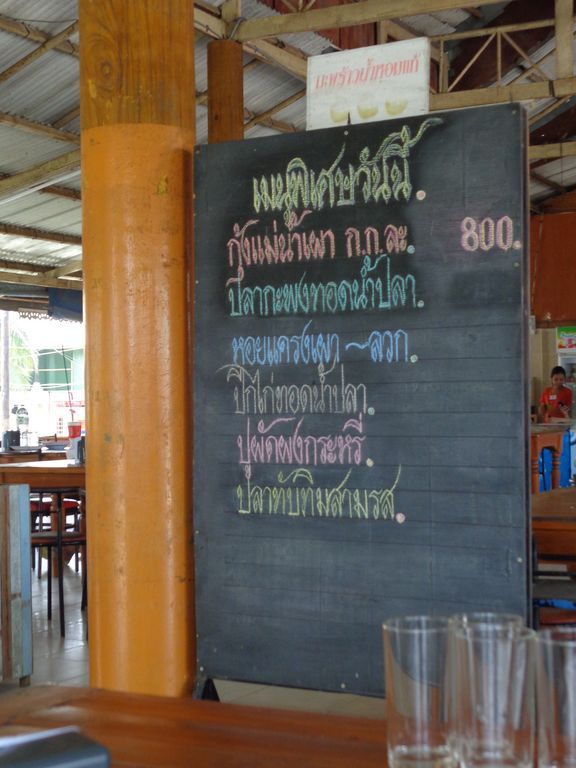 มะพร้าวน้ำหอมแก้
เมนูพิเศษวันนี้.
กุ้งแม่น้ำเผา ก.ก.ละ. 800.
ปลากะพงทอดน้ำปลา.
หอยแครงเผา ~ลวก.
ปีกไก่ทอดน้ำปลา.
ปูผัดผงกระหรี่.
ปลาทับทิมสามรส.